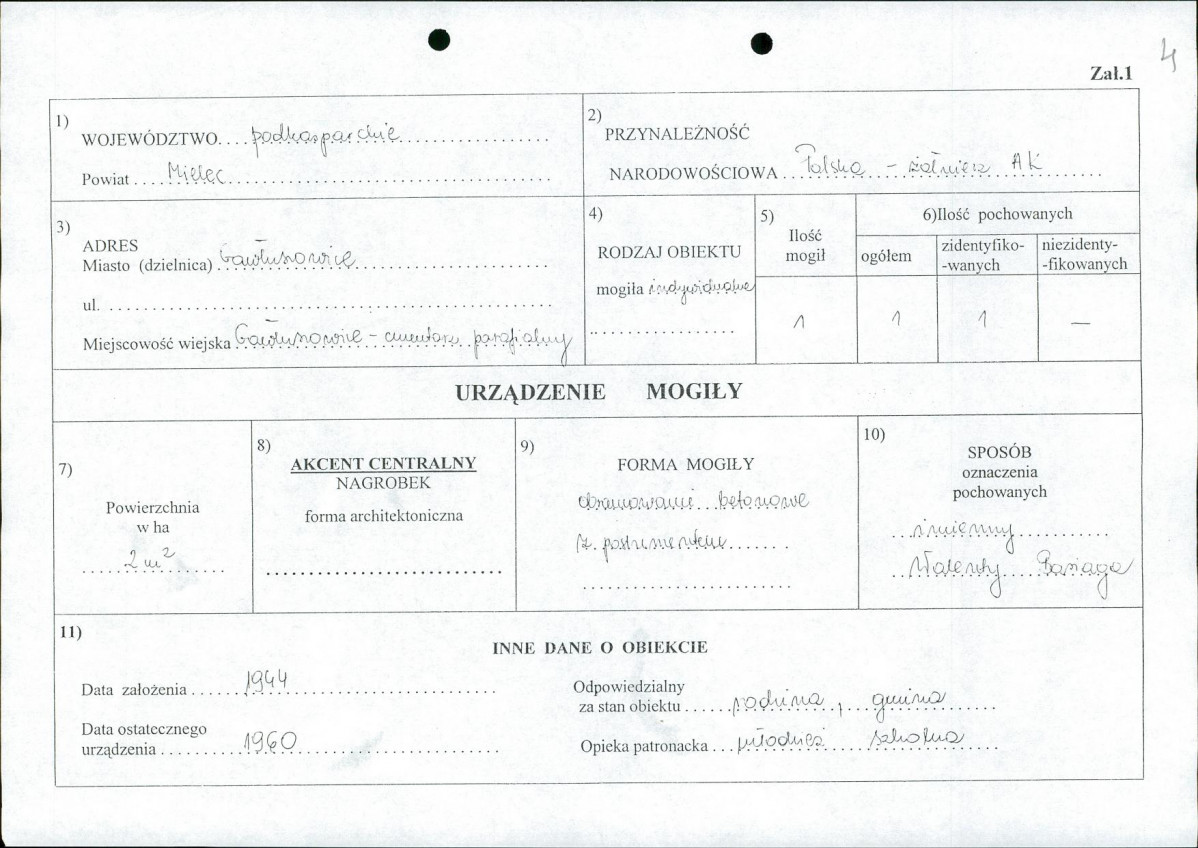 4
Zał.1
1)
WOJEWÓDZTWO....podkarpackie
Powiat ....Mielec
2)
PRZYNALEŻNOŚĆ
NARODOWOŚCIOWA...Polska – żołnierz AK
3)
ADRES
Miasto (dzielnica) Gawłuszowice
ul. ........
Miejscowość wiejska Gawłuszowice – cmentarz parafialny
4)
RODZAJ OBIEKTU
mogiła indywidualna
........
5)
Ilość
mogił
1
6)Ilość pochowanych
ogółem
1
zidentyfiko-
-wanych
1
niezidenty-
-fikowanych
—
URZĄDZENIE MOGIŁY
7)
Powierzchnia
w ha
2 m²
8)
AKCENT CENTRALNY
NAGROBEK
forma architektoniczna
........
9)
FORMA MOGIŁY
obramowanie betonowe
z postumentem
........
10)
SPOSÓB
oznaczenia
pochowanych
imienny
Walenty
11)
INNE DANE O OBIEKCIE
Data założenia ....1944
Data ostatecznego
urządzenia ....1960
Odpowiedzialny
za stan obiektu ....rodzina, gmina
Opieka patronacka ...młodzież szkolna